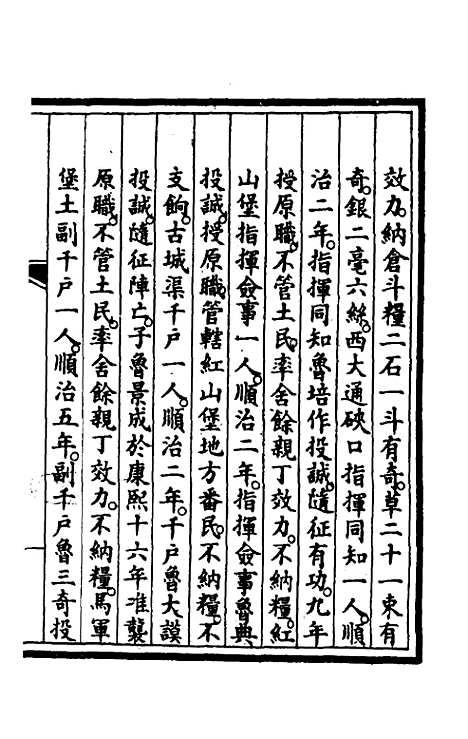 效力。納倉斗糧二石一斗有奇。草二十一束有
奇。銀二毫六絲。西大通硤口指揮同知一人。順
治二年。指揮同知魯培作投誠。隨征有功。九年
授原職。不管土民。率舍餘親丁效力。不納糧。紅
山堡指揮僉事一人。順治二年。指揮僉事魯典
投誠。授原職。管轄紅山堡地方番民。不納糧。不
支餉。古城渠千戶一人。順治二年。千戶魯大誤
投誠。隨征陣亡。子魯景成於康熙十六年准襲
原職。不管土民。率舍餘親丁效力。不納糧。馬軍
堡土副千戶一人。順治五年。副千戶魯三奇投